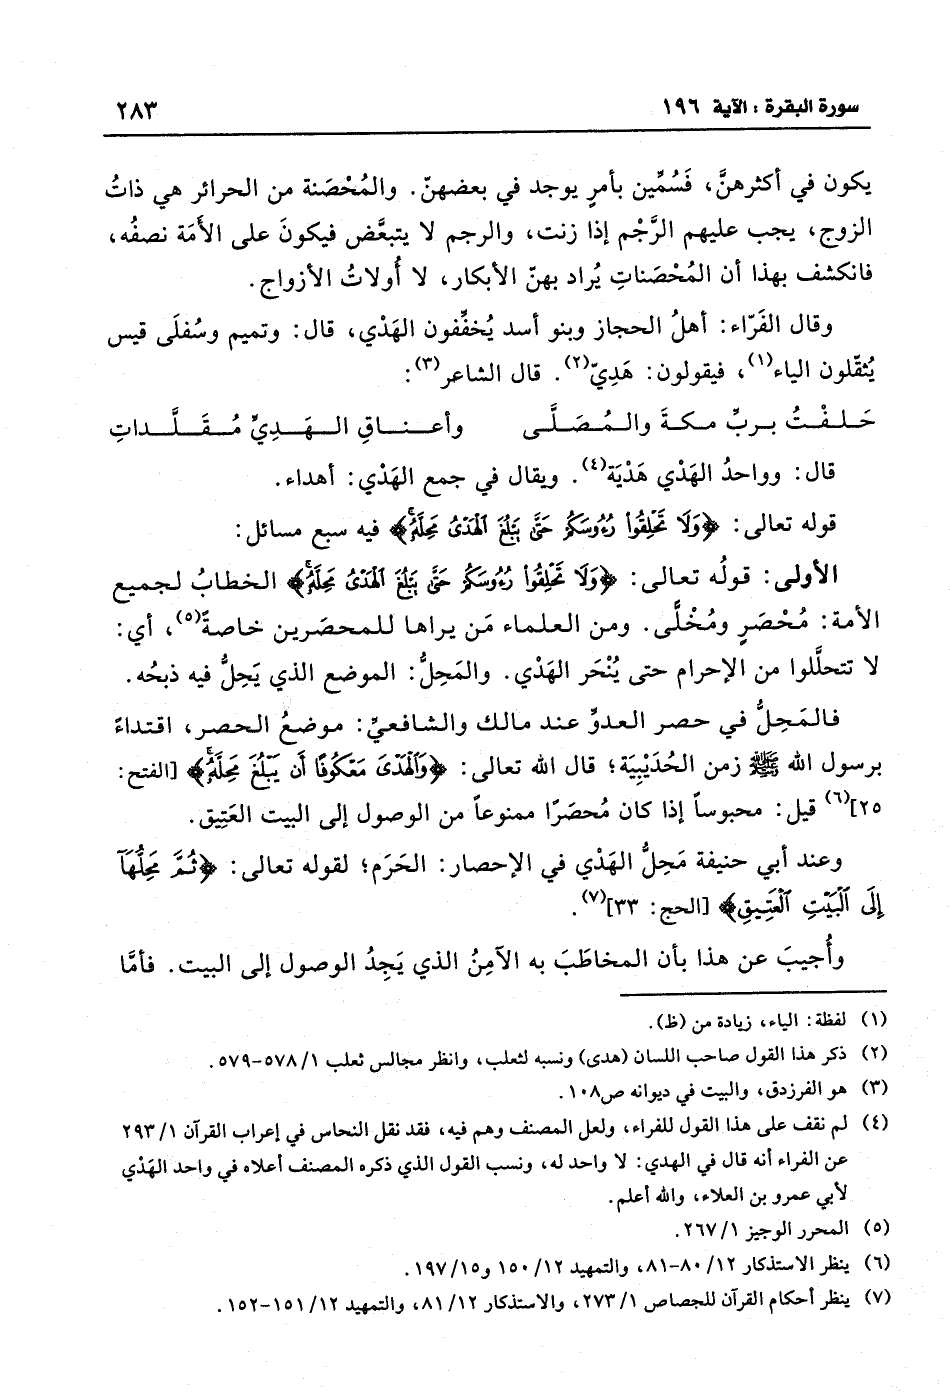 سورة البقرة : الآية ١٩٦ ٢٨٣
يكون في أكثرهنَّ، فَسُمِّين بأمرٍ يوجد في بعضهنّ. والمُحْصَنة من الحرائر هي ذاتُ
الزوج، يجب عليهم الرَّجْم إذا زنت، والرجم لا يتبعَّض فيكونَ على الأمَة نصفُه،
فانكشف بهذا أن المُحْصَناتِ يُراد بهنّ الأبكار، لا أُولاتُ الأزواج.
وقال الفَرّاء: أهلُ الحجاز وبنو أسد يُخفِّفون الهَدْي، قال: وتميم وسُفلَى قيس
يُثقّلون الياء(١)، فيقولون: هَدِيّ(٢). قال الشاعر(٣):
حَلفْتُ بربِّ مكةَ والمُصَلَّى وأعناقِ الهَديِّ مُقَلَّداتِ
قال: وواحدُ الهَدْي هَدْيَة(٤). ويقال في جمع الهَدْي: أهداء.
قوله تعالى: ﴿وَلَا تَحْلِقُوا۟ رُءُوسَكُمْ حَتَّىٰ يَبْلُغَ ٱلْهَدْىُ مَحِلَّهُۥ﴾ فيه سبع مسائل:
الأولى: قولُه تعالى: ﴿وَلَا تَحْلِقُوا۟ رُءُوسَكُمْ حَتَّىٰ يَبْلُغَ ٱلْهَدْىُ مَحِلَّهُۥ﴾ الخطابُ لجميع
الأمة: مُحْصَرٍ ومُخْلًّى. ومن العلماء مَن يراها للمحصَرين خاصةً(٥)، أي:
لا تتحلَّلوا من الإحرام حتى يُنْحَر الهَدْي. والمَحِلُّ: الموضع الذي يَحِلُّ فيه ذبحُه.
فالمَحِلُّ في حصر العدوِّ عند مالك والشافعيِّ: موضعُ الحصر، اقتداءً
برسول الله ﷺ زمن الحُدَيْبِيَة؛ قال الله تعالى: ﴿وَٱلْهَدْىَ مَعْكُوفًا أَن يَبْلُغَ مَحِلَّهُۥ﴾ [الفتح:
٢٥](٦) قيل: محبوساً إذا كان مُحصَرًا ممنوعاً من الوصول إلى البيت العَتِيق.
وعند أبي حنيفة مَحِلُّ الهَدْي في الإحصار: الحَرَم؛ لقوله تعالى: ﴿ثُمَّ مَحِلُّهَآ
إِلَى ٱلْبَيْتِ ٱلْعَتِيقِ﴾ [الحج: ٣٣](٧).
وأُجيبَ عن هذا بأن المخاطَبَ به الآمِنُ الذي يَجِدُ الوصول إلى البيت. فأمَّا
(١) لفظة: الياء، زيادة من (ظ).
(٢) ذكر هذا القول صاحب اللسان (هدى) ونسبه لثعلب، وانظر مجالس ثعلب ١/ ٥٧٨-٥٧٩.
(٣) هو الفرزدق، والبيت في ديوانه ص١٠٨.
(٤) لم نقف على هذا القول للفراء، ولعل المصنف وهم فيه، فقد نقل النحاس في إعراب القرآن ١/ ٢٩٣
عن الفراء أنه قال في الهدي: لا واحد له، ونسب القول الذي ذكره المصنف أعلاه في واحد الهَدْي
لأبي عمرو بن العلاء، والله أعلم.
(٥) المحرر الوجيز ١/ ٢٦٧.
(٦) ينظر الاستذكار ١٢/ ٨٠-٨١، والتمهيد ١٢/ ١٥٠ و١٥/ ١٩٧.
(٧) ينظر أحكام القرآن للجصاص ١/ ٢٧٣، والاستذكار ١٢/ ٨١، والتمهيد ١٢/ ١٥١-١٥٢.